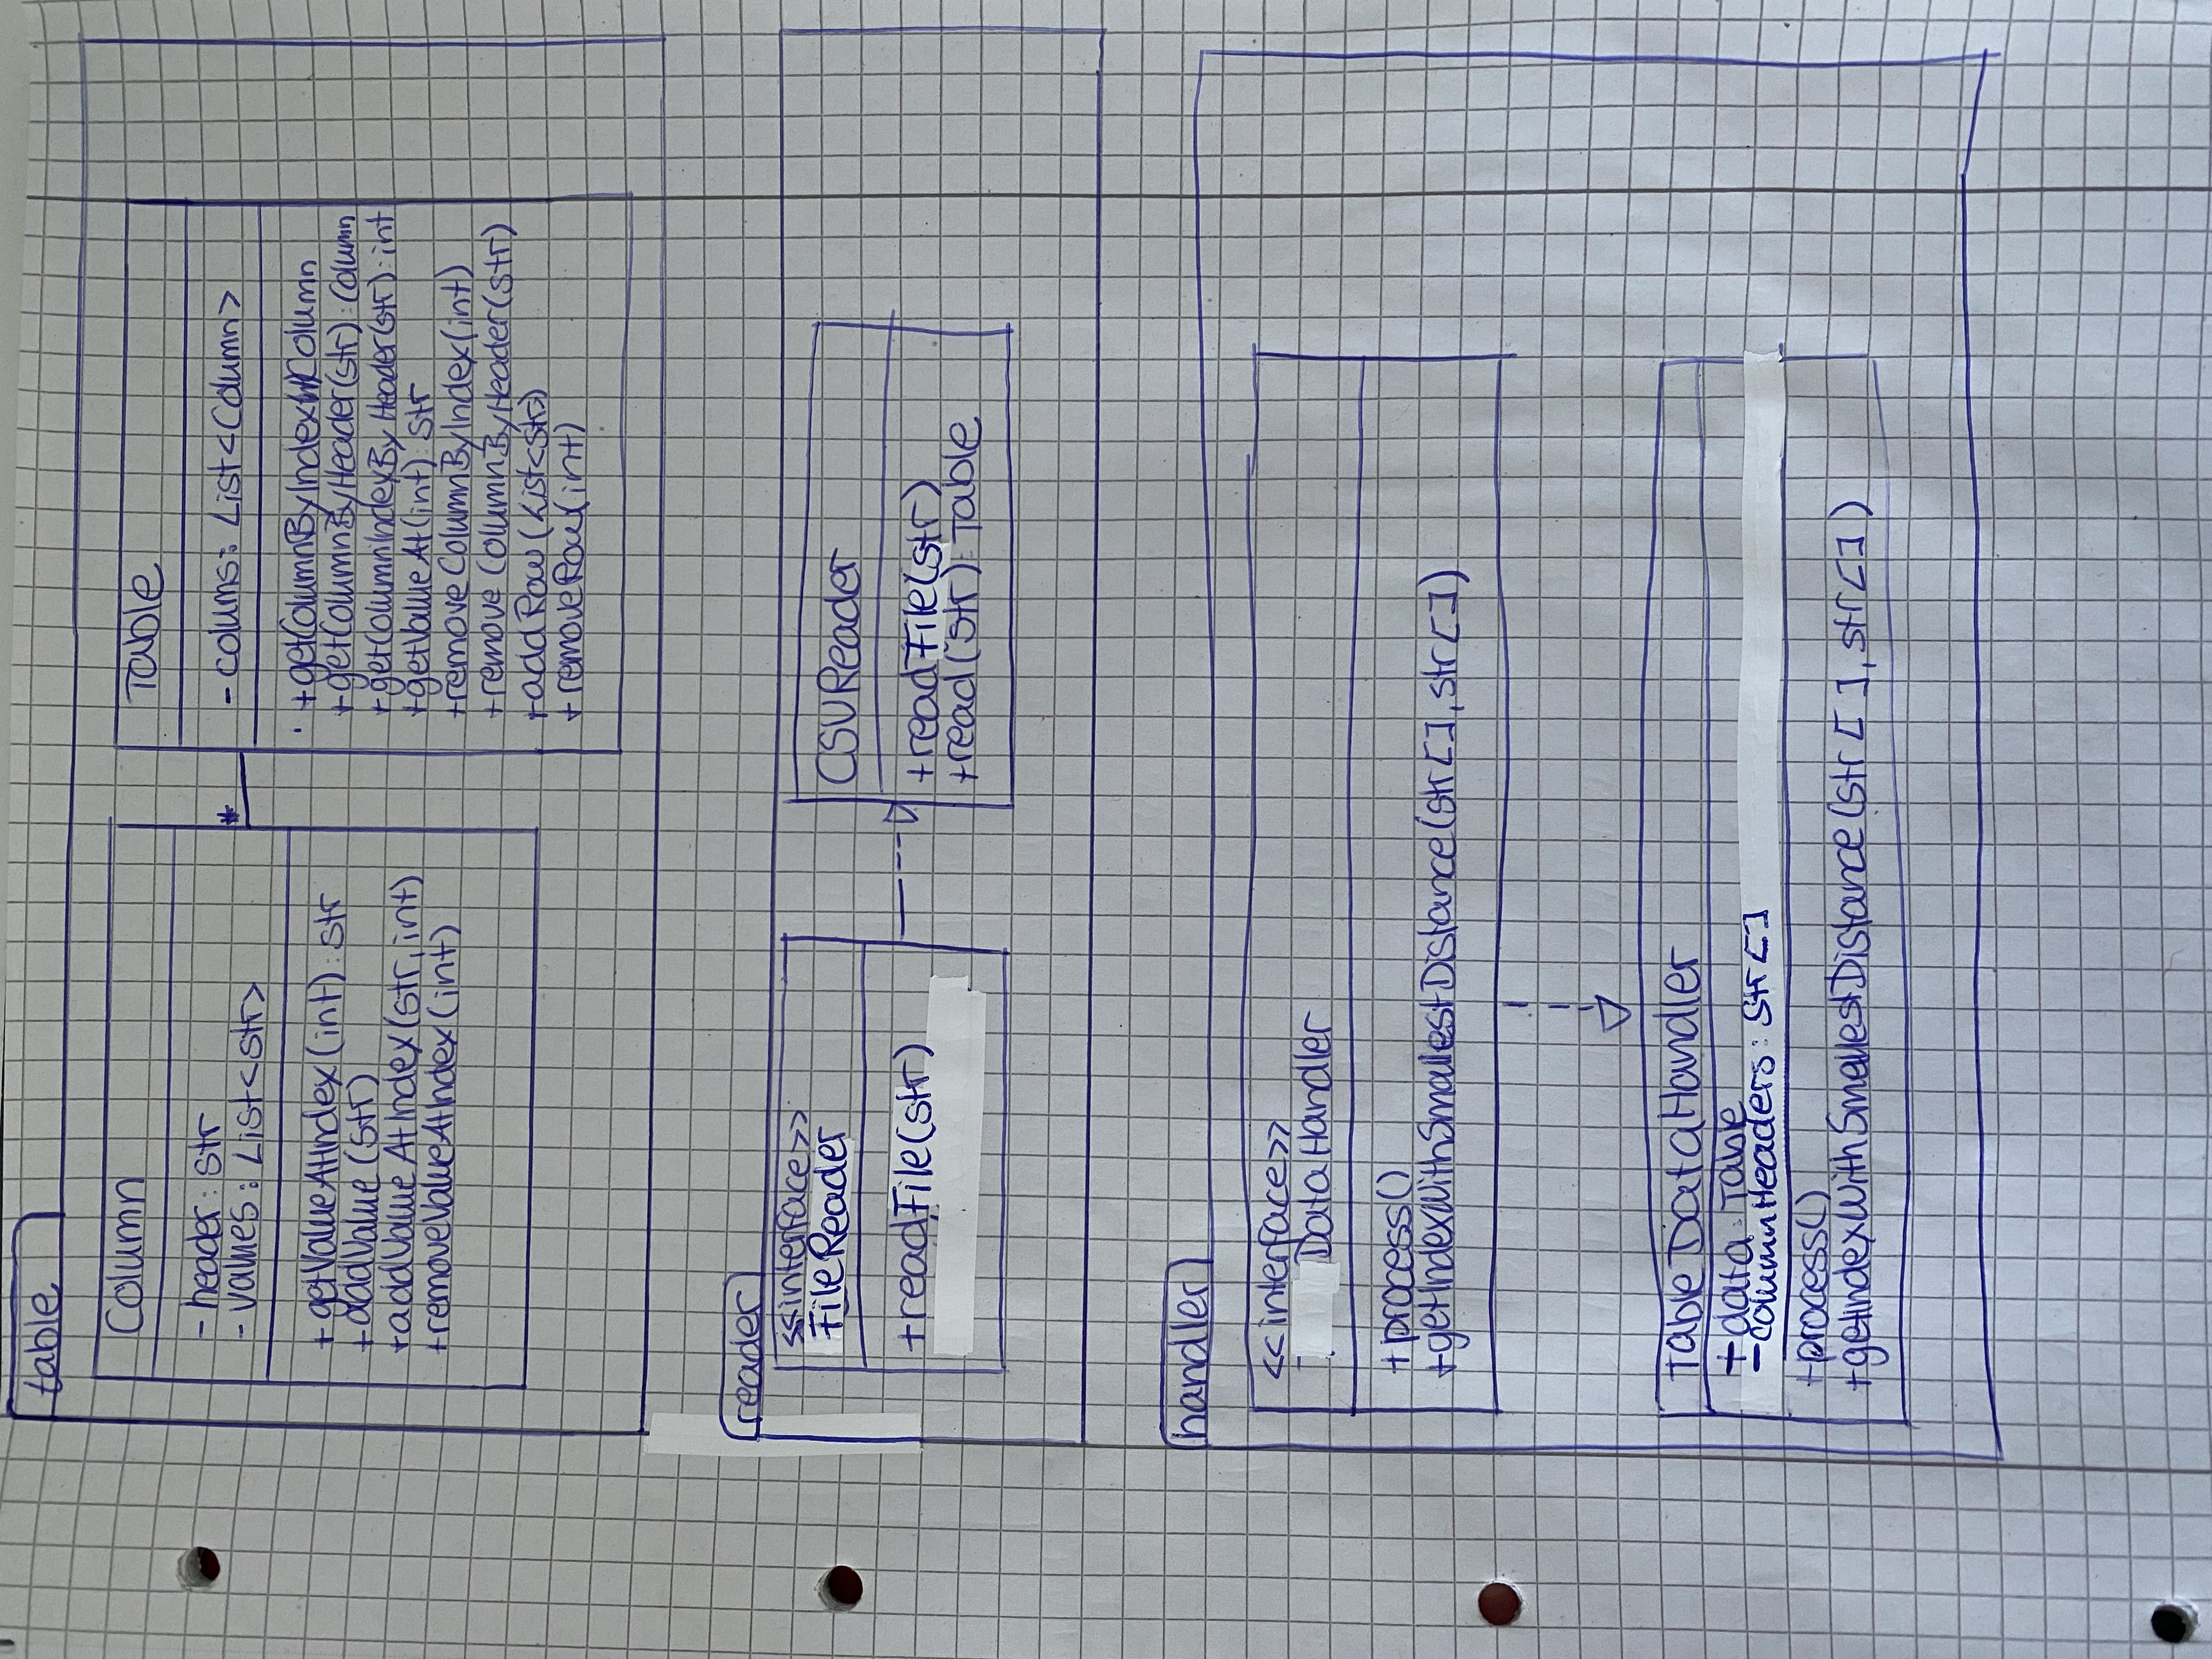 table
Column
- header: str
- values: List<str>
+ getValueAtIndex(int): str
+addValue(str)
+addValueAtIndex(str, int)
+removeValueAtIndex(int)
*
Table
- colums: List<Column>
+getColumnByIndex Column
+getColumnByHeader(str): Column
+getColumnIndexByHeader(str): int
+getValueAt(int): str
+removeColumnByIndex(int)
+removeColumnByHeader(str)
+addRow(List<str>)
+removeRow(int)
reader
<<interface>>
FileReader
+readFile(str)
CSVReader
+readFile(str)
+read(str): Table
handler
<<interface>>
DataHandler
+process()
+getIndexWithSmallestDistance(str[], str[])
TableDataHandler
+data: Table
-columnHeaders: str[]
+process()
+getIndexWithSmallestDistance(str[ ], str[])